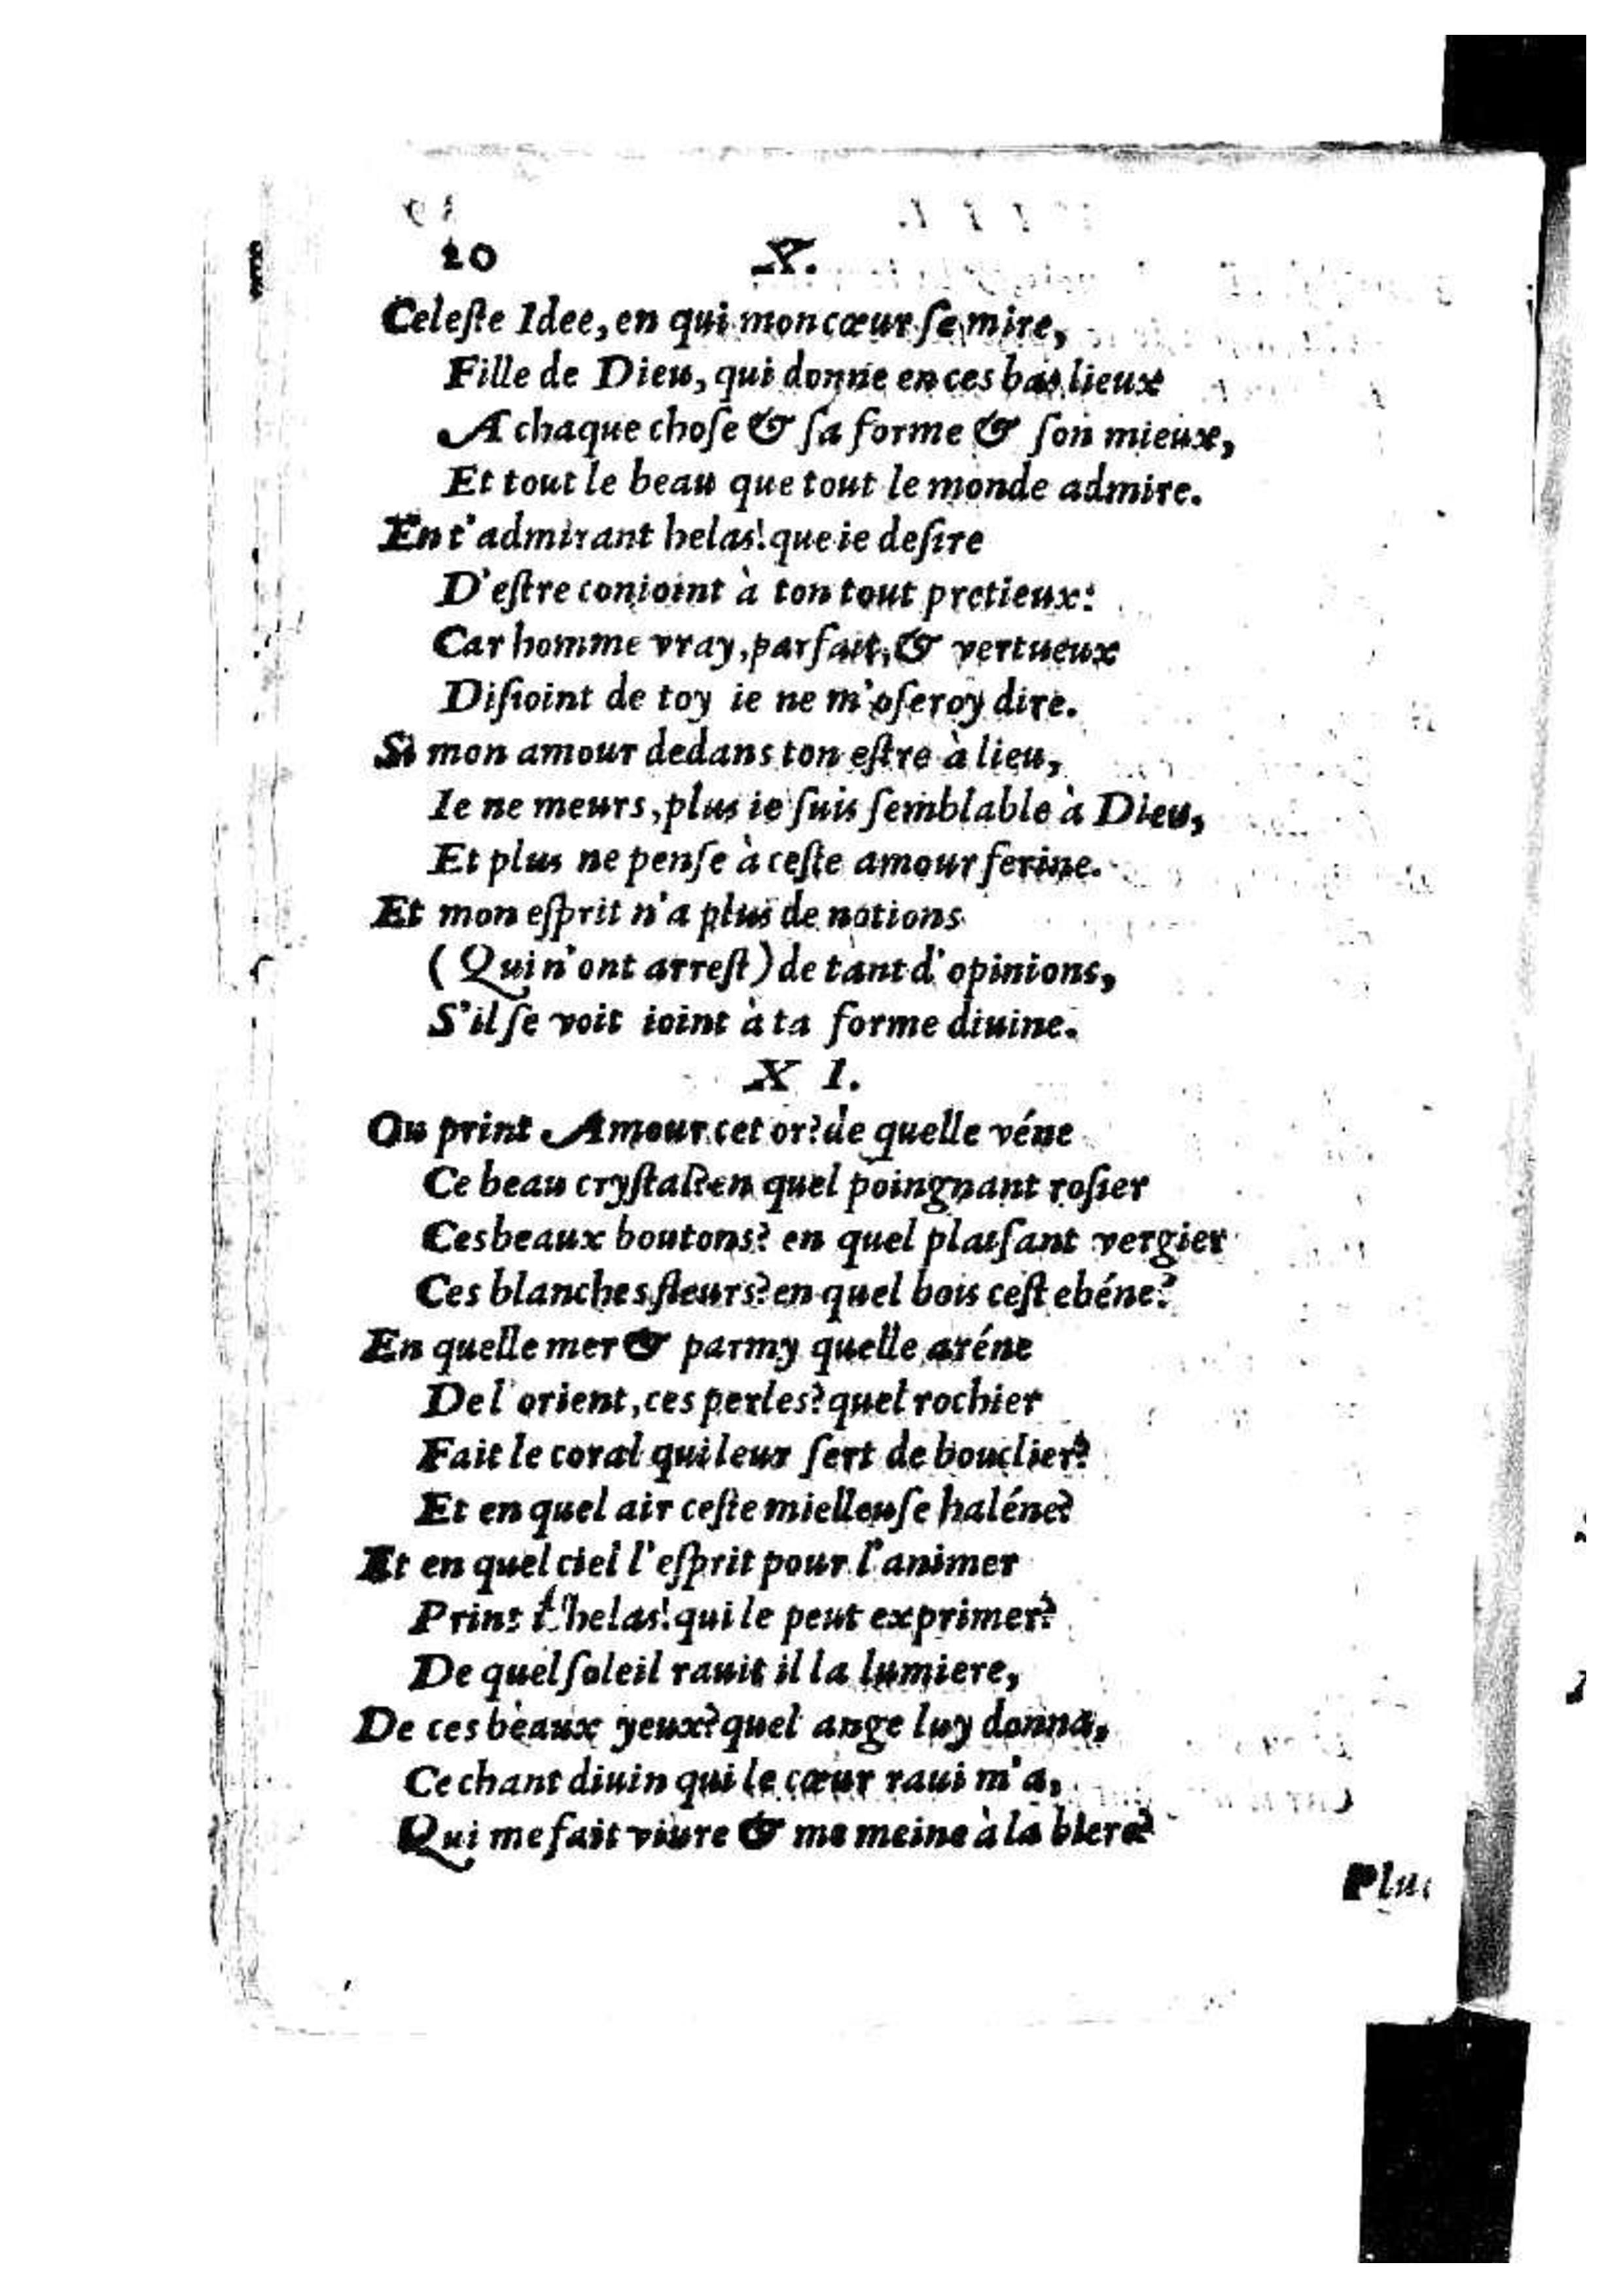 20 X.
Celeſte Idee, en qui mon cœur ſe mire,
Fille de Dieu, qui donne en ces bas lieux
A chaque choſe & ſa forme & ſon mieux,
Et tout le beau que tout le monde admire.
En t'admirant helas! que ie deſire
D'eſtre conioint à ton tout pretieux:
Car homme vray, parfait, & vertueux
Diſioint de toy ie ne m'oſeroy dire.
Si mon amour dedans ton eſtre à lieu,
Ie ne meurs, plus ie ſuis ſemblable à Dieu,
Et plus ne penſe à ceſte amour ferine.
Et mon eſprit n'a plus de notions
(Qui n'ont arreſt) de tant d'opinions,
S'il ſe voit ioint à ta forme diuine.
X I.
Ou print Amour cet or? de quelle véne
Ce beau cryſtal? en quel poingnant roſier
Ces beaux boutons? en quel plaiſant vergier
Ces blanches fleurs? en quel bois ceſt ebéne?
En quelle mer & parmy quelle aréne
De l'orient, ces perles? quel rochier
Fait le coral qui leur ſert de bouclier?
Et en quel air ceſte mielleuſe haléne?
Et en quel ciel l'eſprit pour l'animer
Print helas! qui le peut exprimer?
De quel ſoleil rauit il la lumiere,
De ces beaux yeux? quel ange luy donna,
Ce chant diuin qui le cœur raui m'a,
Qui me fait viure & me meine à la biere?
Plus